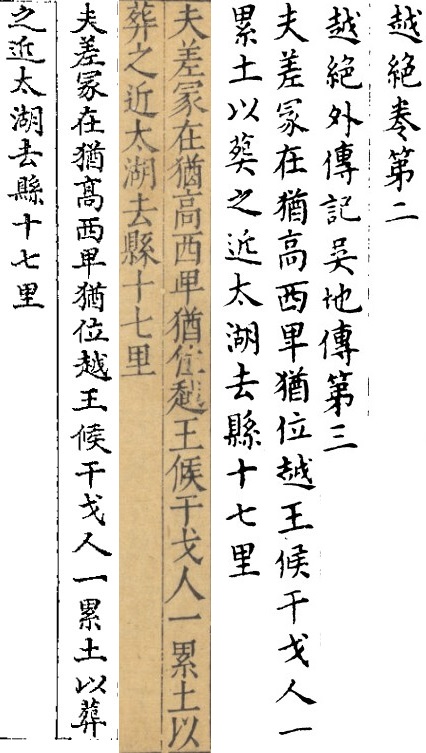 越絕卷第二
越絕外傳記吳地傳第三
夫差冢在猶高西卑猶位越王候干戈人一
累土以葬之近太湖去縣十七里
夫差冢在猶高西卑猶位越王候干戈人一累土以
葬之近太湖去縣十七里
夫差冢在猶髙西卑猶位越王候干戈人一累土以葬
之近太湖去縣十七里